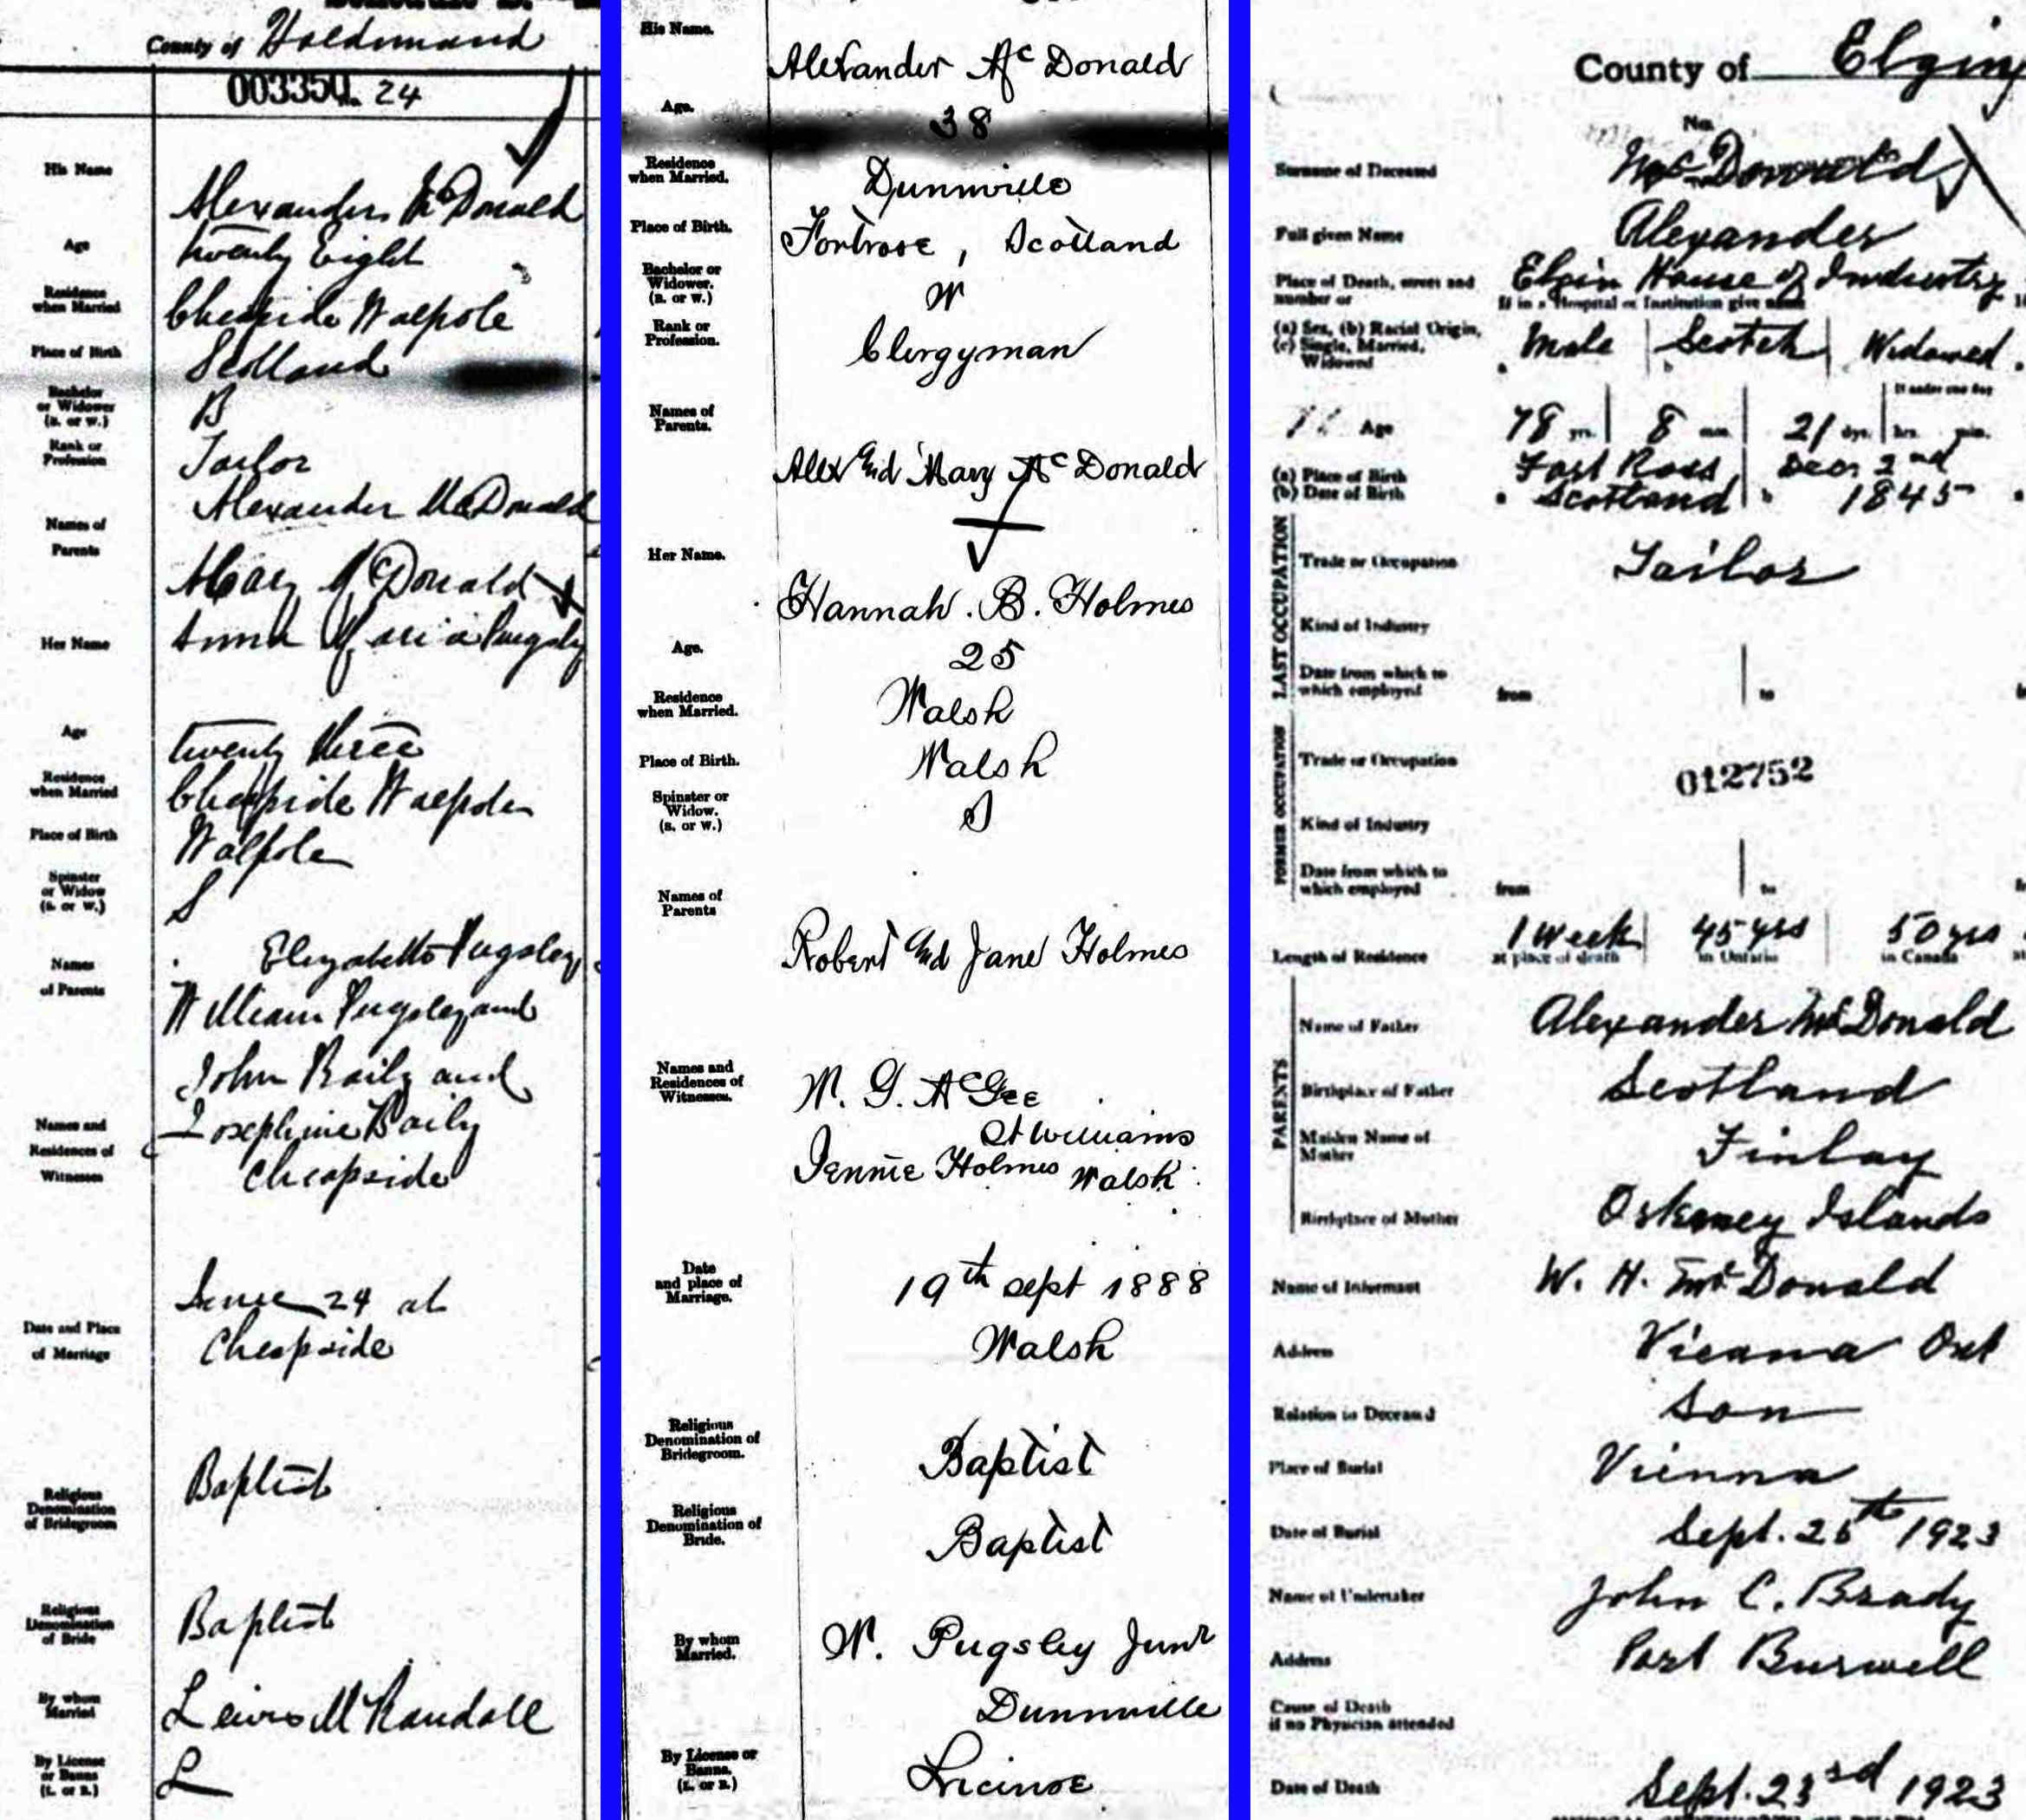 County of Haldimand
003350. 24
His Name
Alexander McDonald
Age
twenty Eight
Residence
when Married
Cheapside Walpole
Place of Birth
Scotland
Bachelor
or Widower
(B. or W.)
B
Rank or
Profession
Tailor
Names of
Parents
Alexander McDonald
Mary McDonald
Her Name
Anna Maria Pugsly
Age
twenty three
Residence
when Married
Cheapside Walpole
Place of Birth
Walpole
Spinster
or Widow
(S. or W.)
S
Names
of Parents
Elizabeth Pugsley
William Pugsley and
Names and
Residences of
Witnesses
John Baily and
Josephine Baily
Cheapside
Date and Place
of Marriage
June 24 at
Cheapside
Religious
Denomination
of Bridegroom
Baptist
Religious
Denomination
of Bride
Baptist
By whom
Married
Lewis M Randall
By License
or Banns
(L. or B.)
L
His Name.
Alexander McDonald
Age.
38
Residence
when Married.
Dunnville
Place of Birth.
Fortrose, Scotland
Bachelor or
Widower.
(B. or W.)
W
Rank or
Profession.
Clergyman
Names of
Parents.
Alex and Mary McDonald
Her Name.
Hannah. B. Holmes
Age.
25
Residence
when Married.
Walsh
Place of Birth.
Walsh
Spinster or
Widow.
(S. or W.)
S
Names of
Parents
Robert and Jane Holmes
Names and
Residences of
Witnesses.
W. G. McGee
St Williams
Jennie Holmes Walsh
Date
and place of
Marriage.
19th sept 1888
Walsh
Religious
Denomination of
Bridegroom.
Baptist
Religious
Denomination of
Bride.
Baptist
By whom
Married.
W. Pugsley Junr
Dunnville
By License or
Banns.
(L. or B.)
Licinse
County of Elgin
No.
Surname of Deceased
McDonald
Full given Name
Alexander
Place of Death, street and
number or
Elgin House of Industry
If in a Hospital or Institution give name
(a) Sex, (b) Racial Origin,
(c) Single, Married,
Widowed
Male Scotch Widowed
If under one day
Age
78 yrs. 8 mos. 21 dys. hrs. min.
(a) Place of Birth
(b) Date of Birth
Ross Decr 2nd
Scotland 1845
LAST OCCUPATION
Trade or Occupation
Tailor
Kind of Industry
Date from which to
which employed
from to
FORMER OCCUPATION
Trade or Occupation
012752
Kind of Industry
Date from which to
which employed
from to
Length of Residence
1 week 45 yrs 50 yrs
at place of death in Ontario in Canada
PARENTS
Name of Father
Alexander McDonald
Birthplace of Father
Scotland
Maiden Name of
Mother
Finlay
Birthplace of Mother
Orkney Islands
Name of Informant
W. H. McDonald
Address
Vienna Ont
Relation to Deceased
Son
Place of Burial
Vienna
Date of Burial
Sept. 25th 1923
Name of Undertaker
John C. Brady
Address
Port Burwell
Cause of Death
if no Physician attended
Date of Death
Sept. 23rd 1923